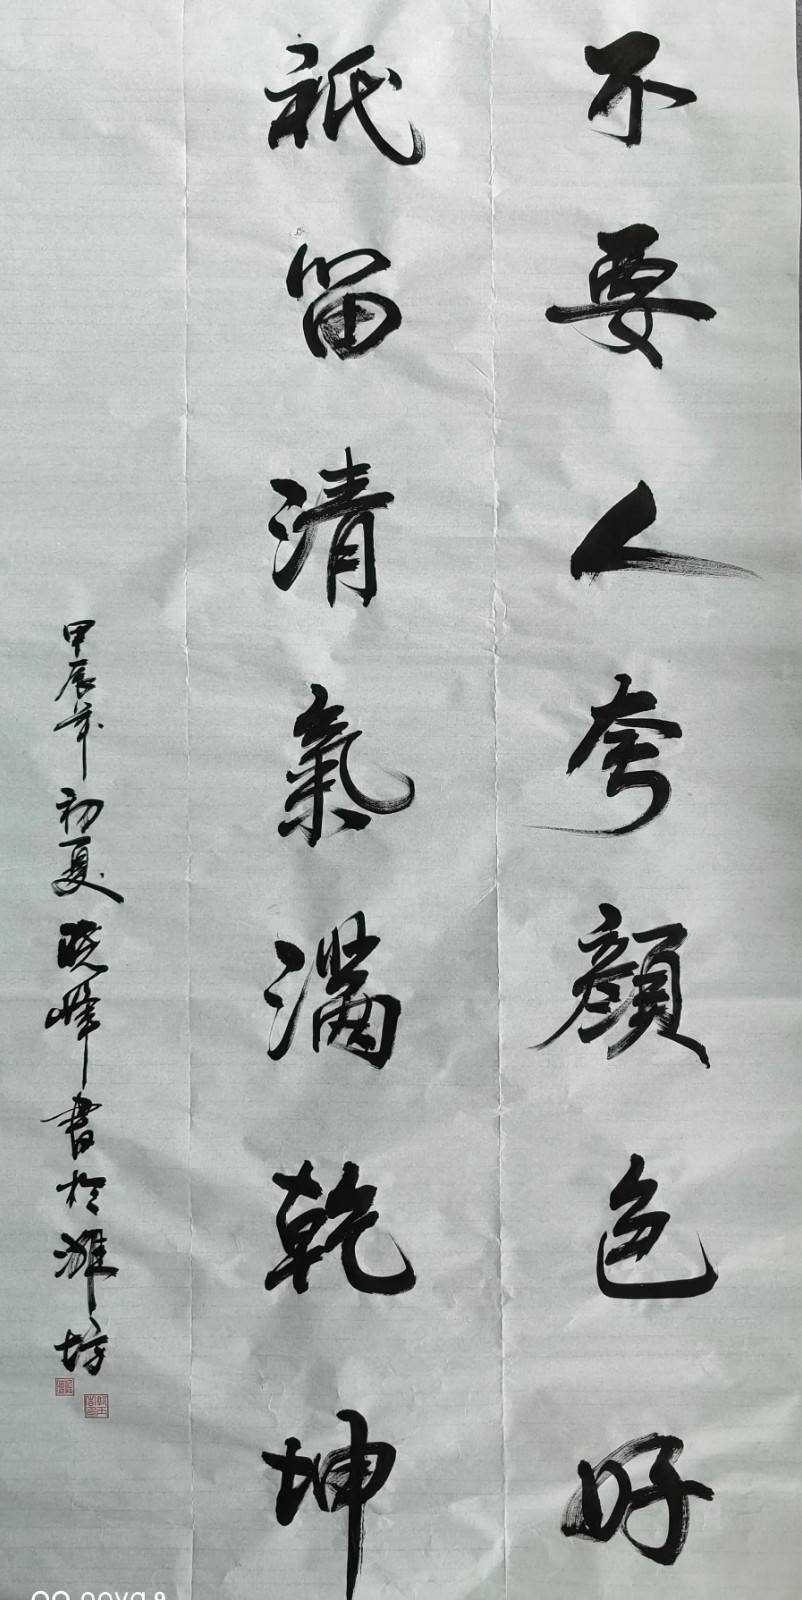 不要人夸顏色好
祇留清氣滿乾坤
甲辰年初夏曉峰書於濰坊